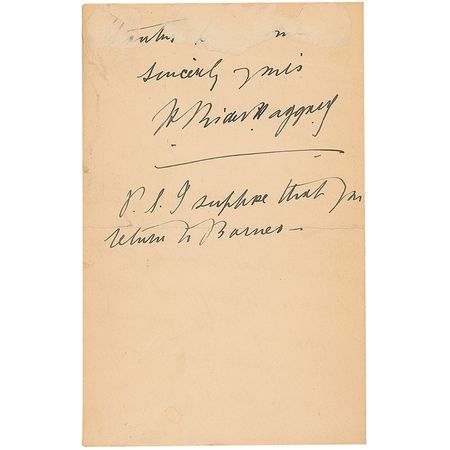 Sincerely yours
H Rider Haggard
P.S. I suppose that you
return to Barnes —